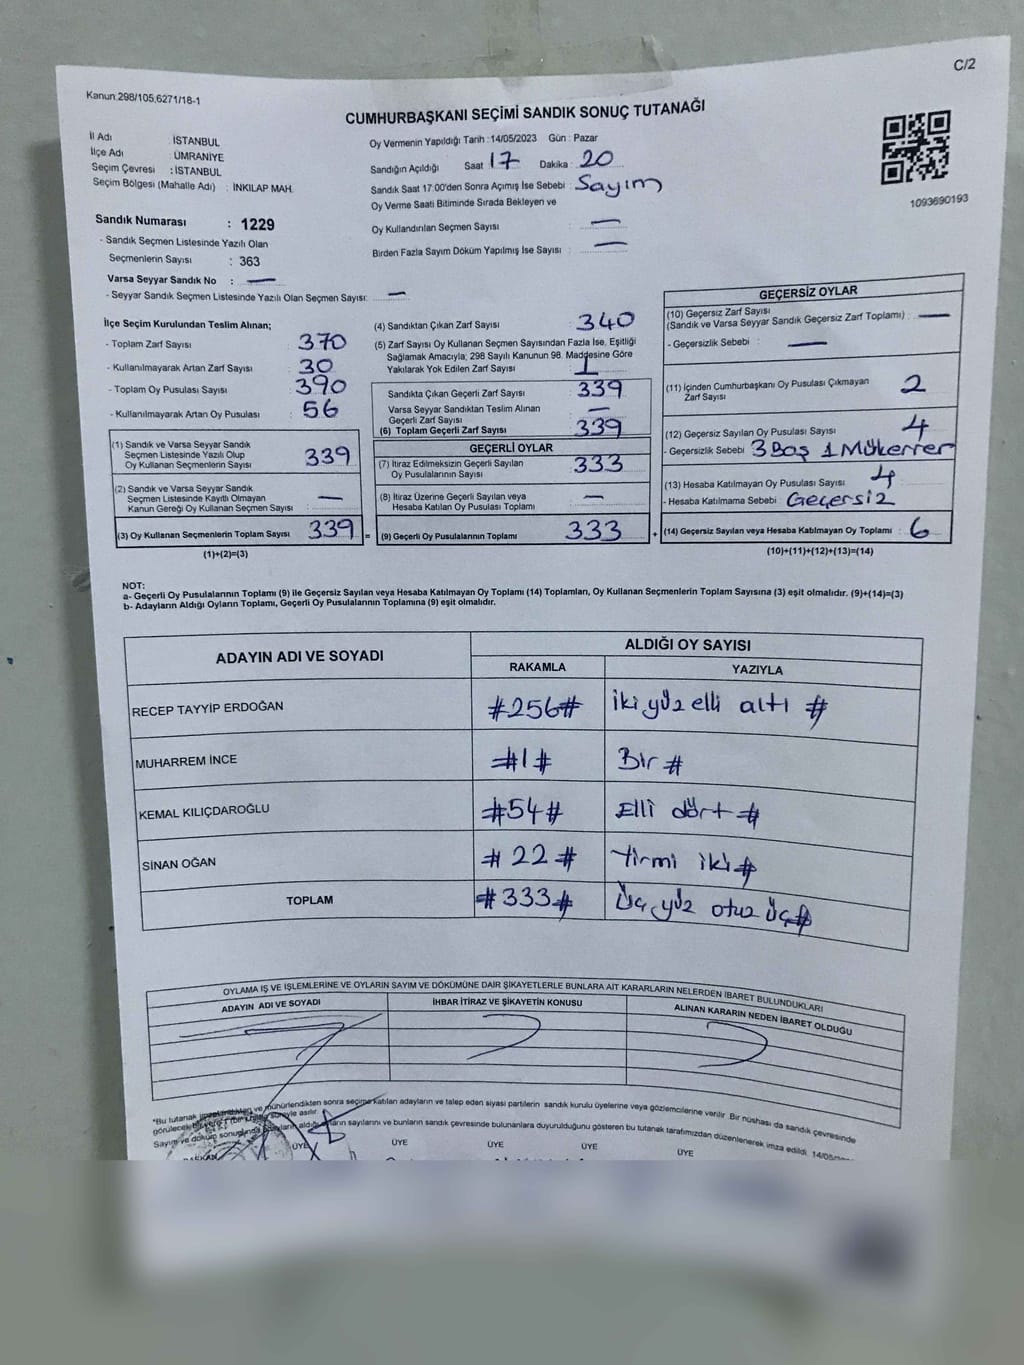 C/2
Kanun:298/105,6271/18-1
CUMHURBAŞKANI SEÇİMİ SANDIK SONUÇ TUTANAĞI
İl Adı : İSTANBUL
İlçe Adı : ÜMRANİYE
Seçim Çevresi : İSTANBUL
Seçim Bölgesi (Mahalle Adı) : İNKILAP MAH.
Sandık Numarası : 1229
- Sandık Seçmen Listesinde Yazılı Olan
Seçmenlerin Sayısı : 363
Varsa Seyyar Sandık No : —
- Seyyar Sandık Seçmen Listesinde Yazılı Olan Seçmen Sayısı: —
Oy Vermenin Yapıldığı Tarih :14/05/2023 Gün : Pazar
Sandığın Açıldığı Saat 17 Dakika : 20
Sandık Saat 17:00'den Sonra Açımış İse Sebebi : Sayım
Oy Verme Saati Bitiminde Sırada Bekleyen ve
Oy Kullandırılan Seçmen Sayısı : —
Birden Fazla Sayım Döküm Yapılmış İse Sayısı : —
1093690193
İlçe Seçim Kurulundan Teslim Alınan;
- Toplam Zarf Sayısı : 370
- Kullanılmayarak Artan Zarf Sayısı : 30
- Toplam Oy Pusulası Sayısı : 390
- Kullanılmayarak Artan Oy Pusulası : 56
(1) Sandık ve Varsa Seyyar Sandık
Seçmen Listesinde Yazılı Olup
Oy Kullanan Seçmenlerin Sayısı : 339
(2) Sandık ve Varsa Seyyar Sandık
Seçmen Listesinde Kayıtlı Olmayan
Kanun Gereği Oy Kullanan Seçmen Sayısı : —
(3) Oy Kullanan Seçmenlerin Toplam Sayısı : 339 =
(1)+(2)=(3)
(4) Sandıktan Çıkan Zarf Sayısı : 340
(5) Zarf Sayısı Oy Kullanan Seçmen Sayısından Fazla İse, Eşitliği
Sağlamak Amacıyla; 298 Sayılı Kanunun 98. Maddesine Göre
Yakılarak Yok Edilen Zarf Sayısı : 1
Sandıkta Çıkan Geçerli Zarf Sayısı : 339
Varsa Seyyar Sandıktan Teslim Alınan
Geçerli Zarf Sayısı : —
(6) Toplam Geçerli Zarf Sayısı : 339
GEÇERLİ OYLAR
(7) İtiraz Edilmeksizin Geçerli Sayılan
Oy Pusulalarının Sayısı : 333
(8) İtiraz Üzerine Geçerli Sayılan veya
Hesaba Katılan Oy Pusulası Toplamı : —
(9) Geçerli Oy Pusulalarının Toplamı : 333 +
GEÇERSİZ OYLAR
(10) Geçersiz Zarf Sayısı
(Sandık ve Varsa Seyyar Sandık Geçersiz Zarf Toplamı) : —
- Geçersizlik Sebebi : —
(11) İçinden Cumhurbaşkanı Oy Pusulası Çıkmayan
Zarf Sayısı : 2
(12) Geçersiz Sayılan Oy Pusulası Sayısı : 4
- Geçersizlik Sebebi : 3 Boş 1 Mükerrer
(13) Hesaba Katılmayan Oy Pusulası Sayısı : 4
- Hesaba Katılmama Sebebi : Geçersiz
(14) Geçersiz Sayılan veya Hesaba Katılmayan Oy Toplamı : 6
(10)+(11)+(12)+(13)=(14)
NOT:
a- Geçerli Oy Pusulalarının Toplamı (9) ile Geçersiz Sayılan veya Hesaba Katılmayan Oy Toplamı (14) Toplamları, Oy Kullanan Seçmenlerin Toplam Sayısına (3) eşit olmalıdır. (9)+(14)=(3)
b- Adayların Aldığı Oyların Toplamı, Geçerli Oy Pusulalarının Toplamına (9) eşit olmalıdır.
ADAYIN ADI VE SOYADI ALDIĞI OY SAYISI
RAKAMLA YAZIYLA
RECEP TAYYİP ERDOĞAN #256# İki yüz elli altı #
MUHARREM İNCE #1# Bir #
KEMAL KILIÇDAROĞLU #54# Elli dört #
SİNAN OĞAN # 22 # Yirmi iki #
TOPLAM #333# Üç yüz otuz üç #
OYLAMA İŞ VE İŞLEMLERİNE VE OYLARIN SAYIM VE DÖKÜMÜNE DAİR ŞİKAYETLERLE BUNLARA AİT KARARLARIN NELERDEN İBARET BULUNDUKLARI
ADAYIN ADI VE SOYADI İHBAR İTİRAZ VE ŞİKAYETİN KONUSU ALINAN KARARIN NEDEN İBARET OLDUĞU
*Bu tutanak ve mühürlendikten sonra seçime katılan adayların ve talep eden siyasi partilerin sandık kurulu üyelerine veya gözlemcilerine verilir. Bir nüshası da sandık çevresinde
görülecek süreyle asılır.
Sayım ve döküm sonuçlarının sayılarını ve bunların sandık çevresinde bulunanlara duyurulduğunu gösteren bu tutanak tarafımızdan düzenlenerek imza edildi.
ÜYE ÜYE ÜYE ÜYE ÜYE